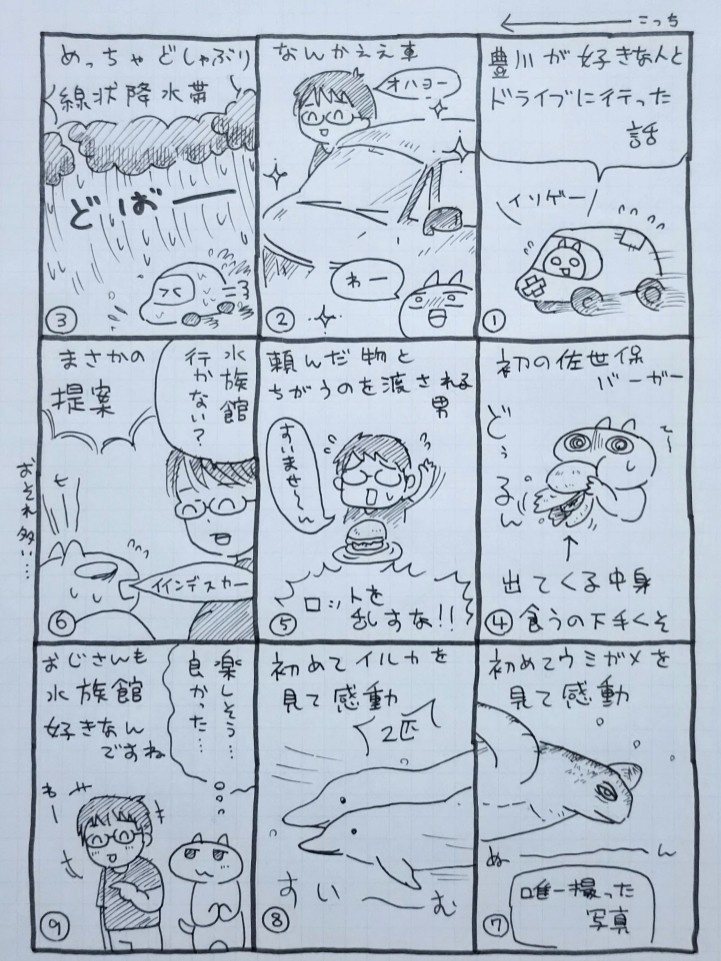 こっち
豊川が好きな人と
ドライブに行った
話
イソゲー
①
なんかええ車
オハヨー
わー
②
めっちゃどしゃぶり
線状降水帯
どばー
③
初の佐世保
バーガー
どぅるん
出てくる中身
④食うの下手くそ
頼んだ物と
ちがうのを渡される
男
すいませ〜ん
ロットを
乱すな!!
⑤
水族館
行かない?
まさかの
提案
イインデスカー
おそれ多い…
⑥
初めてウミガメを
見て感動
ぬーん
唯一撮った
写真
⑦
初めてイルカを
見て感動
2匹
すいーむ
⑧
楽しそう…
良かった…
おじさんも
水族館
好きなん
ですね
わー
⑨